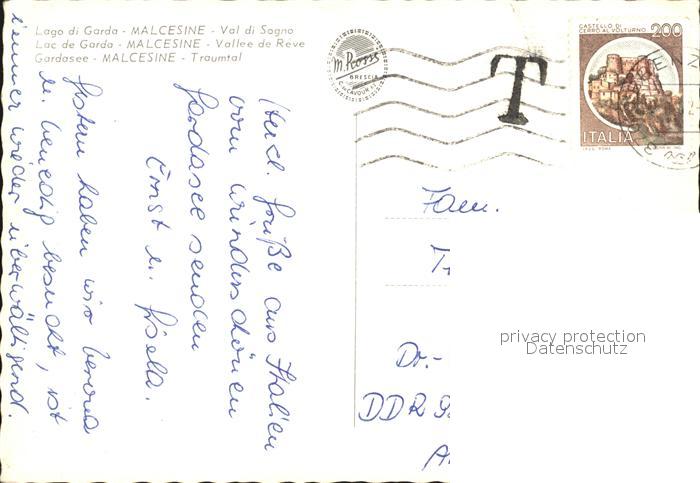 Lago di Garda - MALCESINE - Val di Sogno
Lac de Garda - MALCESINE - Vallee de Reve
Gardasee - MALCESINE - Traumtal
M. Rossi
BRESCIA
C. CAVOUR
T
CASTELLO DI
CERRO AL VOLTURNO
200
ITALIA
Herzl. Grüße aus Italien
vom wunderschönen
Gardasee senden
Ernst u. Gisela.
Gestern haben wir Verona
u. Venedig besucht, ist
immer wieder überwältigend.
Fam.
T
Dr.-
DDR 9
A
privacy protection
Datenschutz